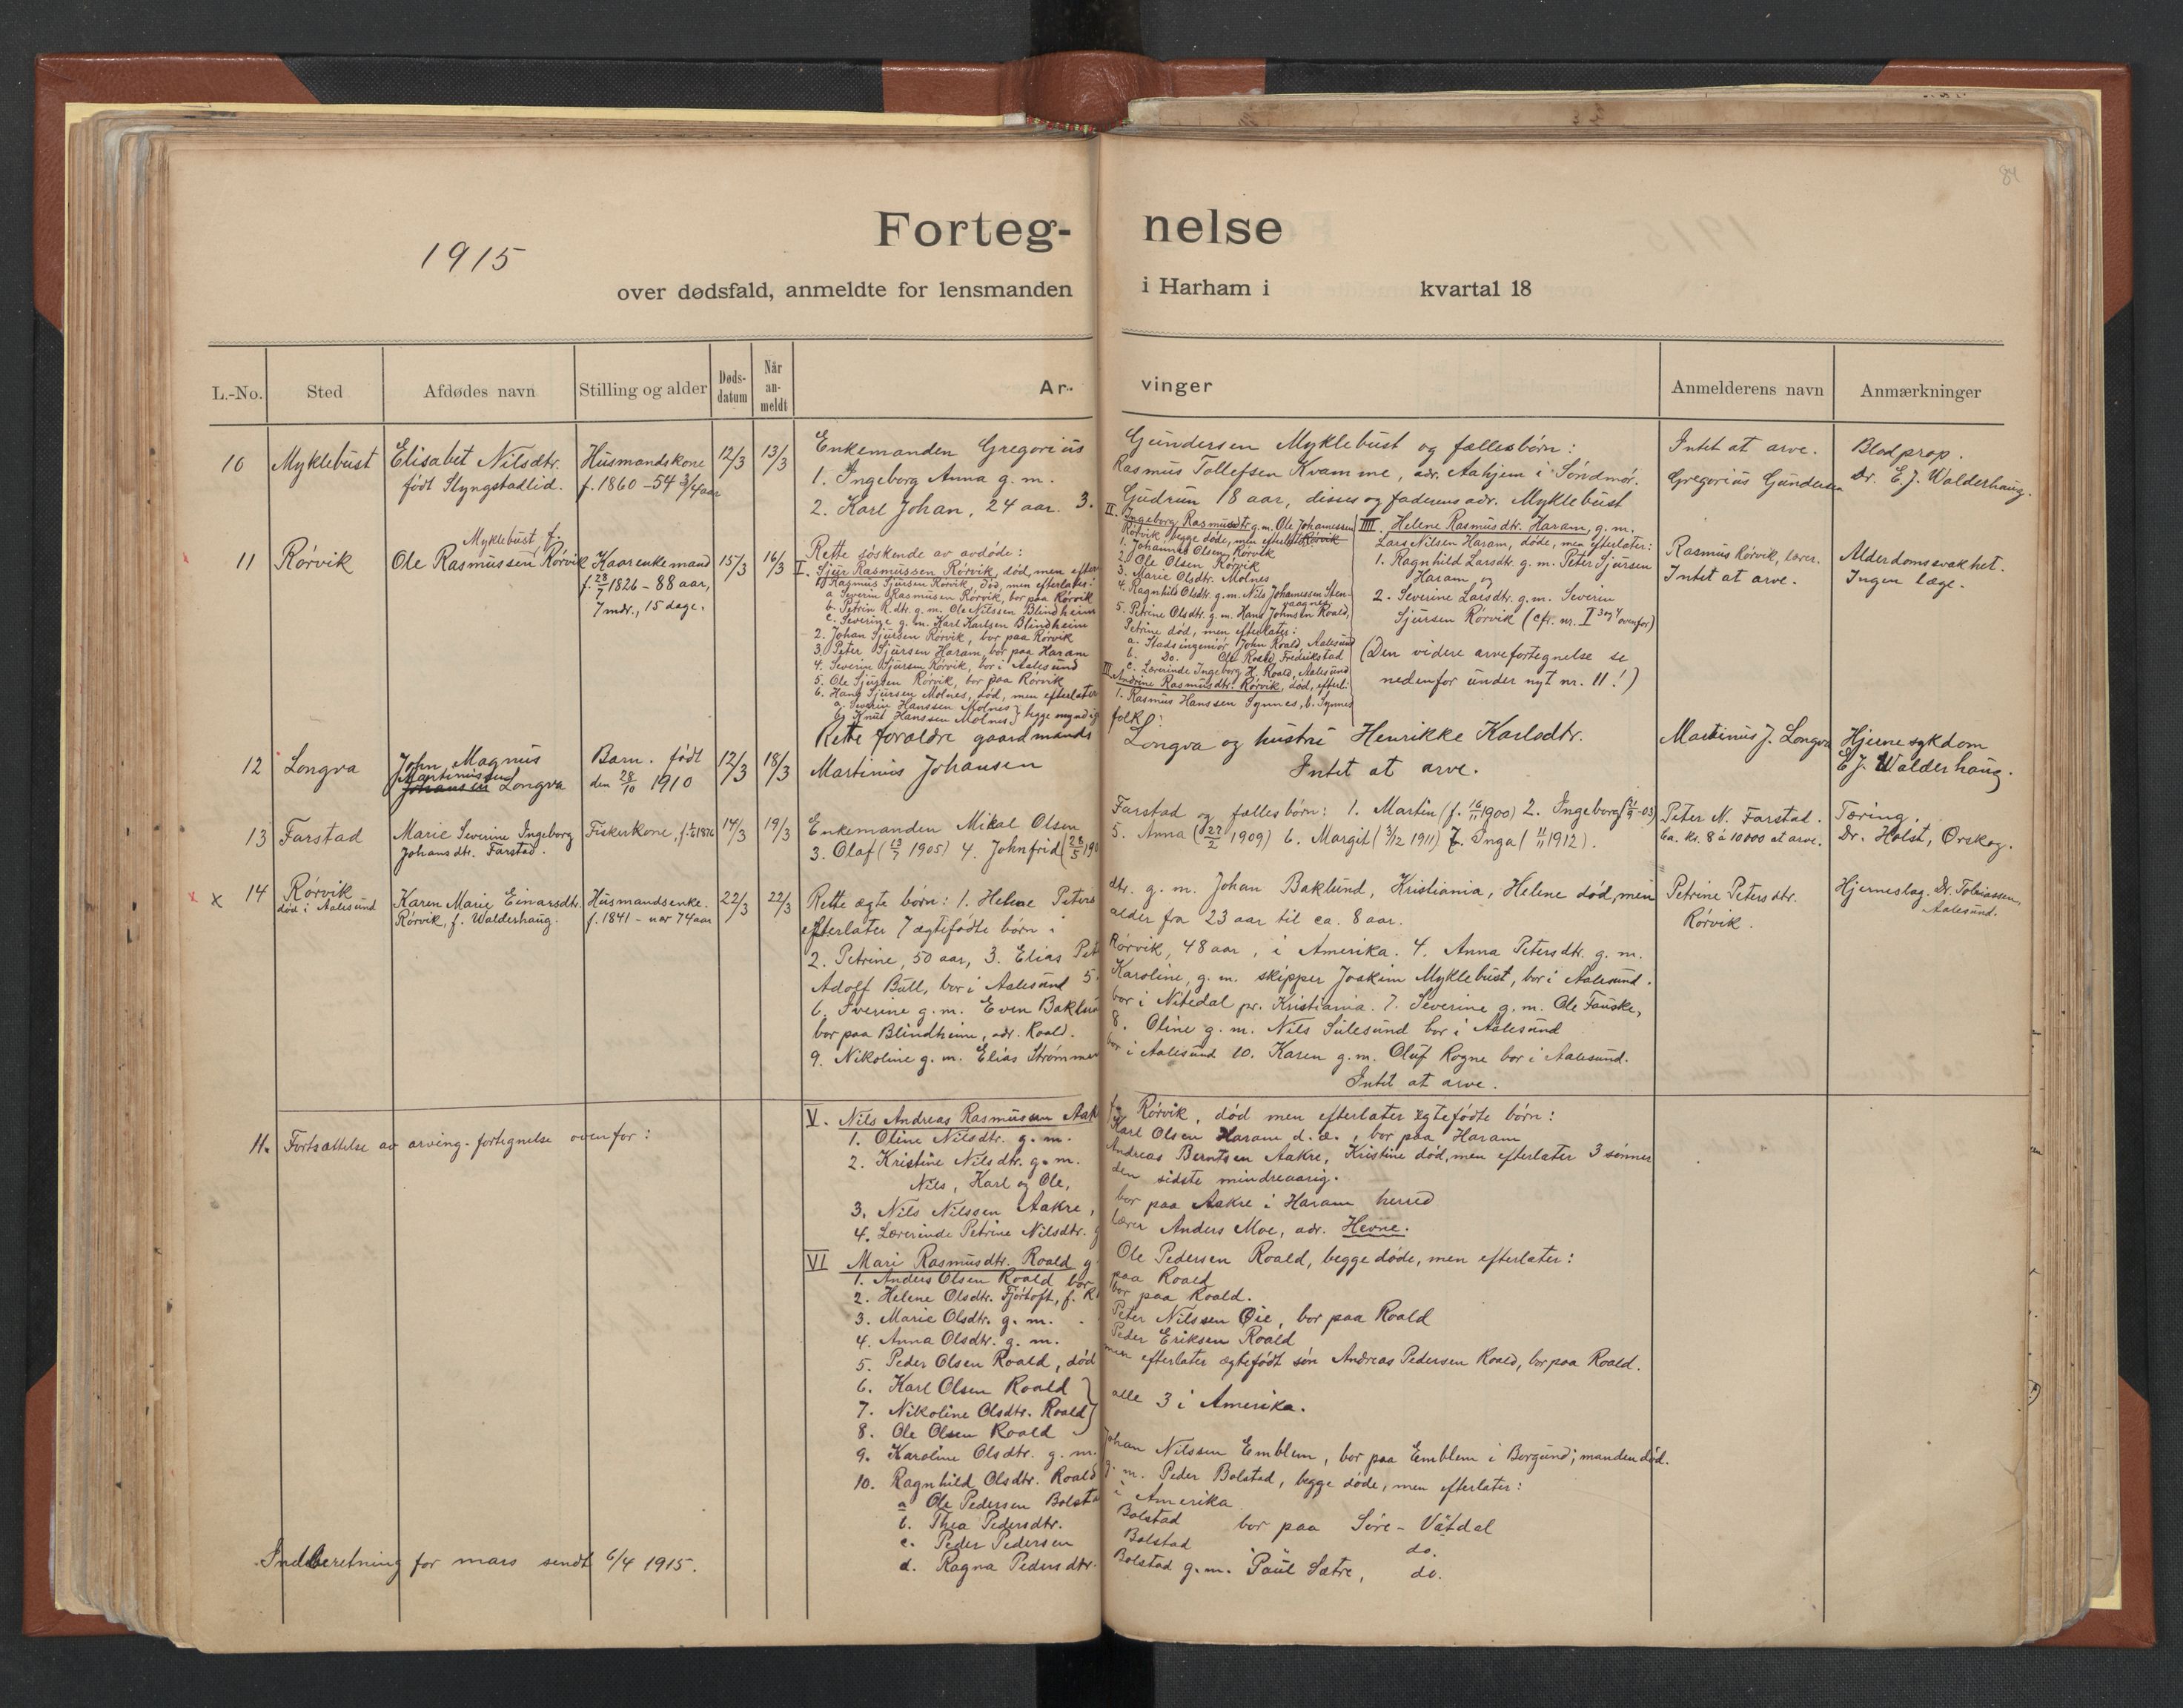 84
1915
Forteg-nelse
over dødsfald, anmeldte for lensmanden i Harham i kvartal 18
L.-No. Sted Afdødes navn Stilling og alder Døds-datum Når an-meldt Ar-vinger Anmelderens navn Anmærkninger
10 Myklebust Elisabet Nilsdtr. født Slyngstadlid.
Husmandskone
f. 1860 - 54 3/4 aar
12/3 13/3
Enkemanden Gregorius Gundersen Myklebust og fællesbörn:
1. Ingeborg Anna g. m. Rasmus Tollefsen Kvamme, adr. Aahjem i Söndmör.
2. Karl Johan, 24 aar. 3. Gudrun 18 aar, disses og faderens adr. Myklebust
Intet at arve.
Gregorius Gundersen
Blodprop.
Dr. E. J. Walderhaug.
11 Rörvik
Myklebust f.
Ole Rasmussen Rörvik
Kaarenkemand
f. 28/7 1826 - 88 aar,
7 mdr., 15 dage.
15/3 16/3
Rette söskende av avdöde:
I. Sjur Rasmussen Rörvik, död, men efter
1) Rasmus Sjursen Rörvik, Död, men efterlater:
a. Severin Rasmussen Rörvik, bor paa Rörvik
b. Petrin R.dtr. g. m. Ole Nilssen Blindheim
c. Severine g. m. Karl Karlsen Blindheim
2. Johan Sjursen Rörvik, bor paa Rörvik
3. Peter Sjursen Haram, bor paa Haram
4. Severin Sjursen Rörvik, bor i Aalesund
5. Ole Sjursen Rörvik, bor paa Rörvik
6. Hans Sjursen Molnes, död, men efterlater
a. Severin Hanssen Molnes } begge myndig
b. Knut Hanssen Molnes } folk!
II. Ingeborg Rasmusdtr g. m. Ole Johannessen
Rörvik begge döde, men efterl. Rörvik
1. Johannes Olsen, Rörvik
2. Ole Olsen Rörvik
3. Marie Olsdtr. Molnes
4. Ragnhild Olsdtr. g. m. Nils Johannessen Sten-
5. Petrine Olsdtr. g. m. Hans Johnsen Roald,
Petrine död, men efterlater:
a. Stadsingeniör John Roald, Aalesund
b. Do. Ole Roald Fredrikstad
c. Lærerinde Ingeborg H. Roald, Aalesund
III. Andrine Rasmusdtr. Rörvik, död, efterl.
1. Rasmus Hanssen Synnes, b. Synnes
IIII. Helene Rasmusdtr. Haram, g. m.
Lars Nilsen Haram, döde, men efterlater:
1. Ragnhild Larsdtr. g. m. Peter Sjursen
Haram, og
2. Severine Larsdtr. g. m. Severin
Sjursen Rörvik (cfr. nr. I 3 og 4 ovenfor)
(Den videre arvefortegnelse se
nedenfor under nyt nr. 11!)
Rasmus Rörvik, lærer.
Intet at arve.
Alderdomssvakhet.
Ingen læge.
12 Longva
John Magnus
Martinussen
Johansen Longva
Barn. födt
den 28/10 1910
12/3 18/3
Rette forældre gaardmands
Martinus Johansen Longva og hustru Henrikke Karlsdtr.
Intet at arve.
Martinus J. Longva
Hjernesykdom
E J. Walderhaug.
13 Farstad
Marie Severine Ingeborg
Johansdtr. Farstad.
Fiskerkone, f. 1876
14/3 19/3
Enkemanden Mikal Olsen Farstad og fællesbörn: 1. Martin (f. 16/11 1900) 2. Ingeborg (21/9-03)
3. Olaf (13/7 1905) 4. Johnfrid (28/5 190 5. Anna (22/2 1909) 6. Margit (3/12 1911) 7. Inga (11/11 1912).
Peter N. Farstad.
Ca. kr. 8 à 10000 at arve.
Tæring.
Dr. Holst, Ørskog.
x x 14 Rörvik
död i Aalesund
Karen Marie Einarsdtr.
Rörvik, f. Walderhaug.
Husmandsenke.
f. 1841 - nær 74 aar
22/3 22/3
Rette ægte börn: 1. Helene Petersdtr. g. m. Johan Baklund, Kristiania, Helene död, men
efterlater 7 ægtefödte börn i alder fra 23 aar til ca. 8 aar.
2. Petrine, 50 aar, 3. Elias Pet Rörvik, 48 aar, i Amerika. 4. Anna Petersdtr. g. m.
Adolf Bull, bor i Aalesund 5. Karoline, g. m. skipper Joakim Myklebust, bor i Aalesund.
6. Sverine g. m. Even Baklund bor i Nitedal pr. Kristiania. 7. Severine g. m. Ole Fauske,
bor paa Blindheim, adr. Roald. 8. Oline g. m. Nils Sulesund bor i Aalesund
9. Nikoline g. m. Elias Strömmen bor i Aalesund 10. Karen g. m. Oluf Rogne bor i Aalesund.
Intet at arve.
Petrine Petersdtr.
Rörvik.
Hjerneslag. Dr. Tobiassen,
Aalesund.
11. Fortsættelse av arving-fortegnelse ovenfor:
V. Nils Andreas Rasmussen Aak f. Rörvik, död men efterlater ægtefödte börn:
1. Oline Nilsdtr. g. m. Karl Olsen Haram d. æ., bor paa Haram
2. Kristine Nilsdtr. g. m. Andreas Berntsen Aakre, Kristine död, men efterlater 3 sönner
Nils, Karl og Ole, den sidste mindreaarig.
3. Nils Nilssen Aakre, bor paa Aakre i Haram herred
4. Lærerinde Petrine Nilsdtr. g lærer Anders Moe, adr. Hevne.
VI Mari Rasmusdtr. Roald g. Ole Pedersen Roald, begge döde, men efterlater:
1. Anders Olsen Roald bor paa Roald
2. Helene Olsdtr. Fjörtoft, f. R bor paa Roald.
3. Marie Olsdtr. g. m. Peter Nilssen Øie, bor paa Roald
4. Anna Olsdtr. g. m. Peder Eriksen Roald
5. Peder Olsen Roald, död men efterlater ægtefödt sön Andreas Pedersen Roald, bor paa Roald.
6. Karl Olsen Roald }
7. Nikoline Olsdtr. Roald } alle 3 i Amerika.
8. Ole Olsen Roald
9. Karoline Olsdtr. g. m. Johan Nilssen Emblem, bor paa Emblem i Borgund; manden död.
10. Ragnhild Olsdtr. Roald g. m. Peder Bolstad, begge döde, men efterlater:
a Ole Pedersen Bolsta i Amerika
b. Thea Pedersdtr. Bolstad bor paa Söre-Vatdal
c. Peder Pedersen Bolstad " " do.
d. Ragna Pedersdtr. Bolstad g. m. Paul Sætre, do.
Indberetning for mars sendt 6/4 1915.